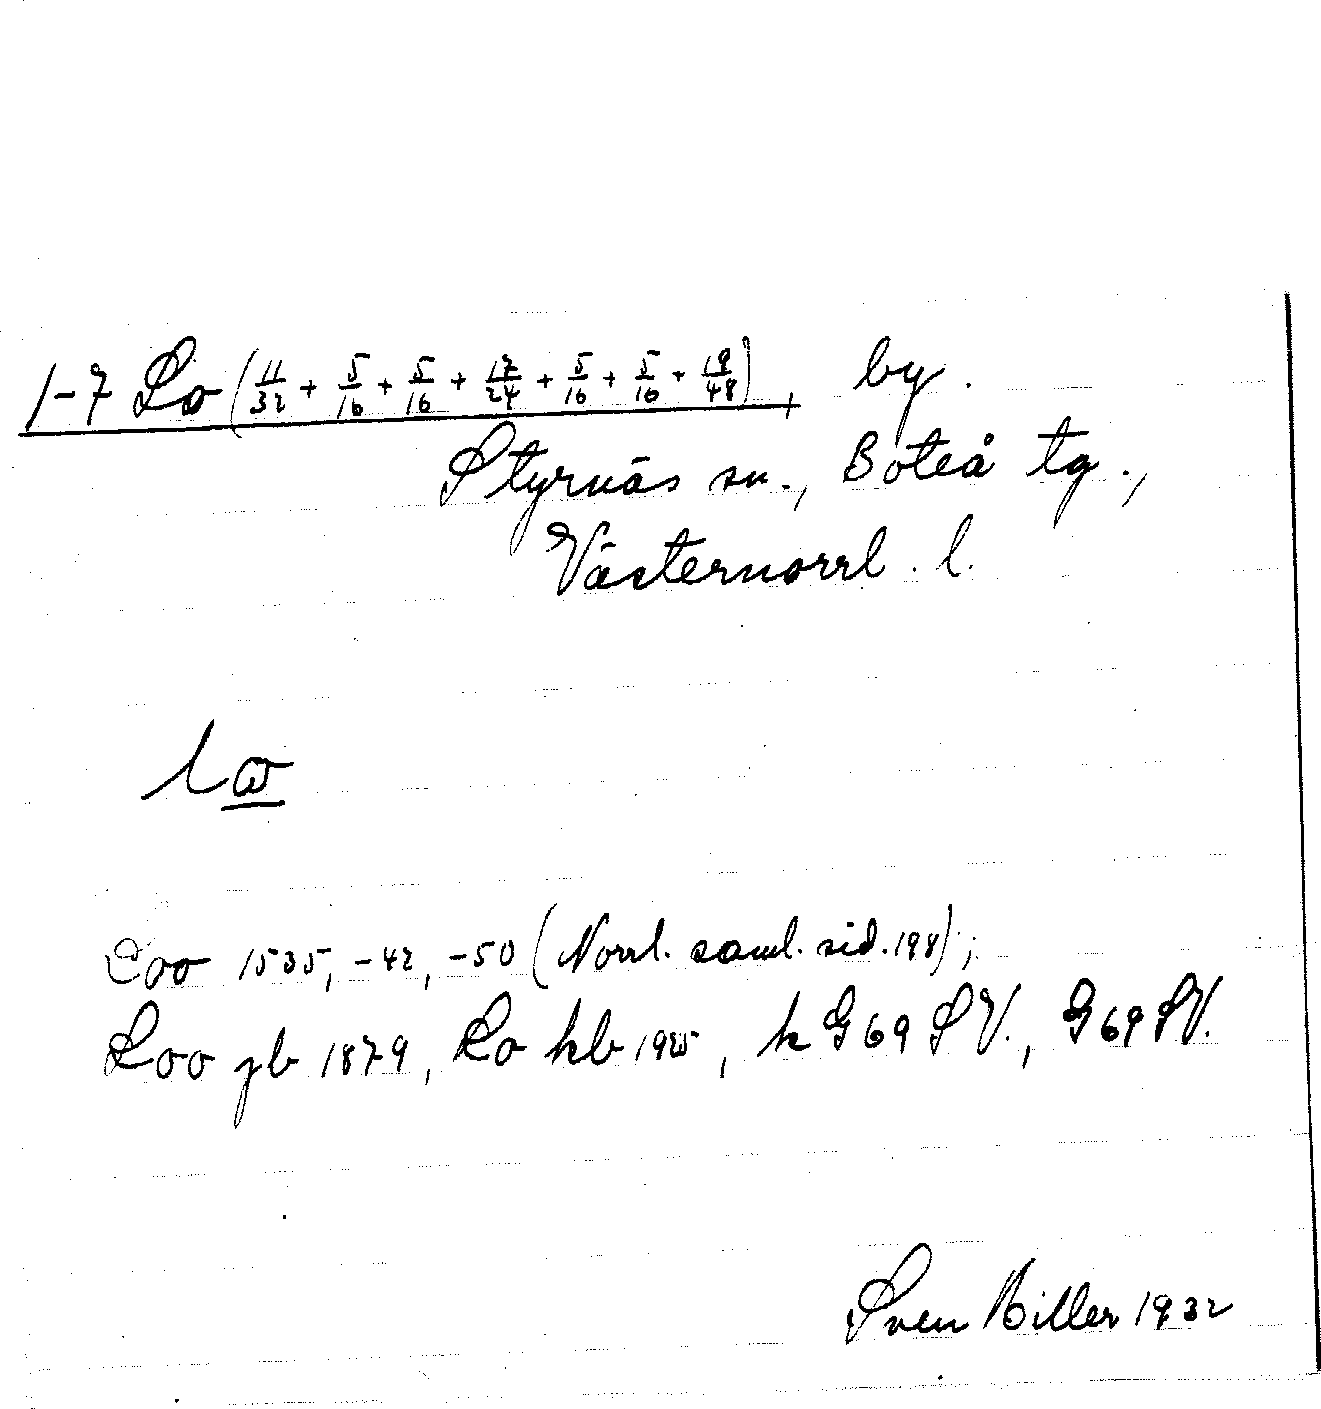 1-7 Lo (11/32 + 5/16 + 5/16 + 17/24 + 5/16 + 5/16 + 19/48), by.
Styrnäs sn., Boteå tg.,
Västernorrl. l.
Loo 1535, -42, -50 (Norrl. saml. sid. 198);
Loo jb 1879, Lo kb 1925, k G69 SV., G69 SV.
Sven Biller 1932